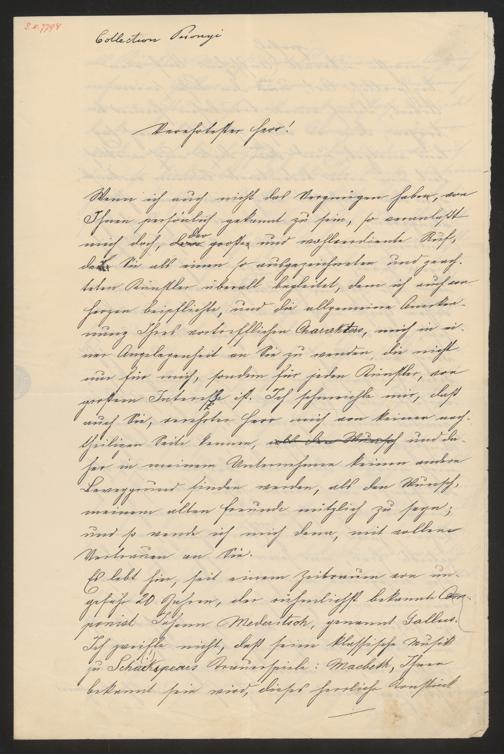 Collection Puonyi
Verehrtester Herr!
Wenn ich auch nicht das Vergnügen habe, von
Ihnen persönlich gekannt zu sein, so veranlaßt
mich doch, der große und wohlverdiente Ruf,
der Sie als einen so ausgezeichneten und geach-
teten Künstler überall begleitet, dem ich auch von
Herzen beipflichte, und die allgemeine Anerken-
nung Ihres vortrefflichen Charakters, mich in ei-
ner Angelegenheit an Sie zu wenden, die nicht
nur für mich, sondern für jeden Künstler, von
großem Interesse ist. Ich schmeichle mir, daß
auch Sie, verehrter Herr mich von keiner nach-
theiligen Seite kennen, als den Wunsch und da-
her in meinem Unternehmen keinen andern
Beweggrund finden werden, als den Wunsch,
meinem alten Freunde nützlich zu seyn;
und so wende ich mich denn, mit vollem
Vertrauen an Sie.
Es lebt hier, seit einem Zeitraume von un-
gefähr 20 Jahren, der rühmlichst bekannte Com-
ponist Johann Mederitsch, genannt Gallus.
Ich zweifle nicht, daß seine klassische Musik
zu Schakspears Trauerspiele: Macbeth, Ihnen
bekannt sein wird, dieses herrliche Tonstück